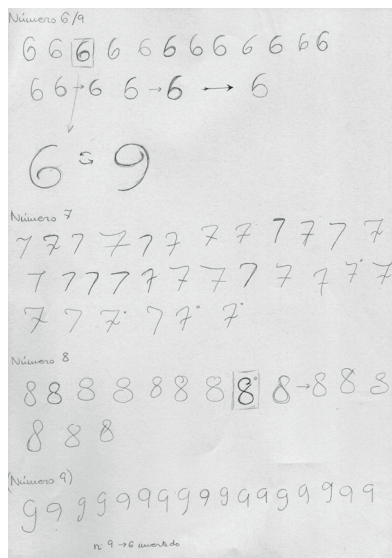 Número 6/9
6 6 6 6 6 6 6 6 6 6 6 6
6 6 → 6 6 → 6 → 6
6 9
Número 7
7 7 7 7 7 7 7 7 7 7 7 7
7 7 7 7 7 7 7 7 7 7 7 7
7 7 7 7 7 7
Número 8
8 8 8 8 8 8 8 8 8 → 8 8 8
8 8 8
(Número 9)
9 9 9 9 9 9 9 9 9 9 9 9 9 9 9 9 9 9
nº 9 → 6 invertido